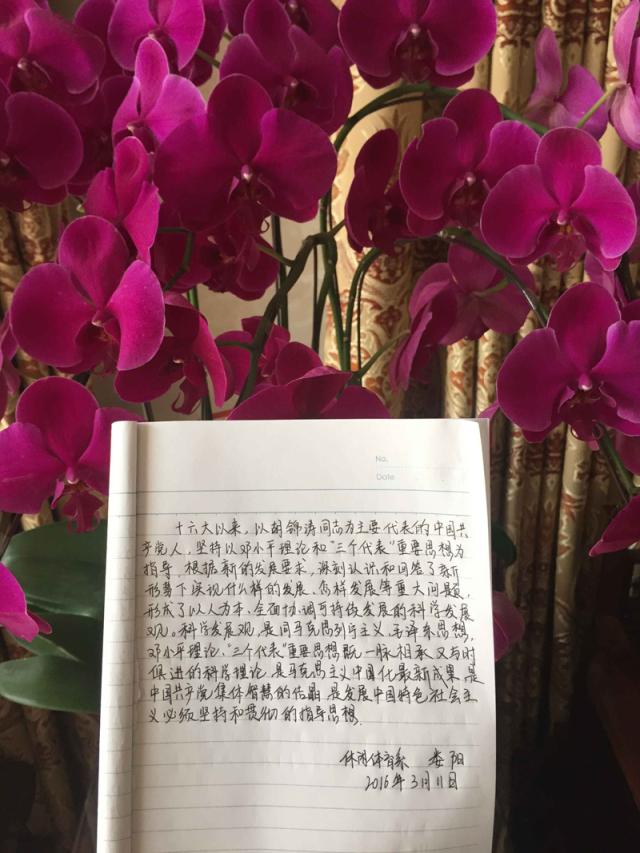 No.
Date
十六大以来，以胡锦涛同志为主要代表的中国共
产党人，坚持以邓小平理论和“三个代表”重要思想为
指导，根据新的发展要求，深刻认识和回答了新
形势下实现什么样的发展、怎样发展等重大问题，
形成了以人为本、全面协调可持续发展的科学发展
观。科学发展观，是同马克思列宁主义、毛泽东思想，
邓小平理论、“三个代表”重要思想既一脉相承又与时
俱进的科学理论，是马克思主义中国化最新成果，是
中国共产党集体智慧的结晶，是发展中国特色社会主
义必须坚持和贯彻的指导思想.
休闲体育系 娄阳
2016年3月11日